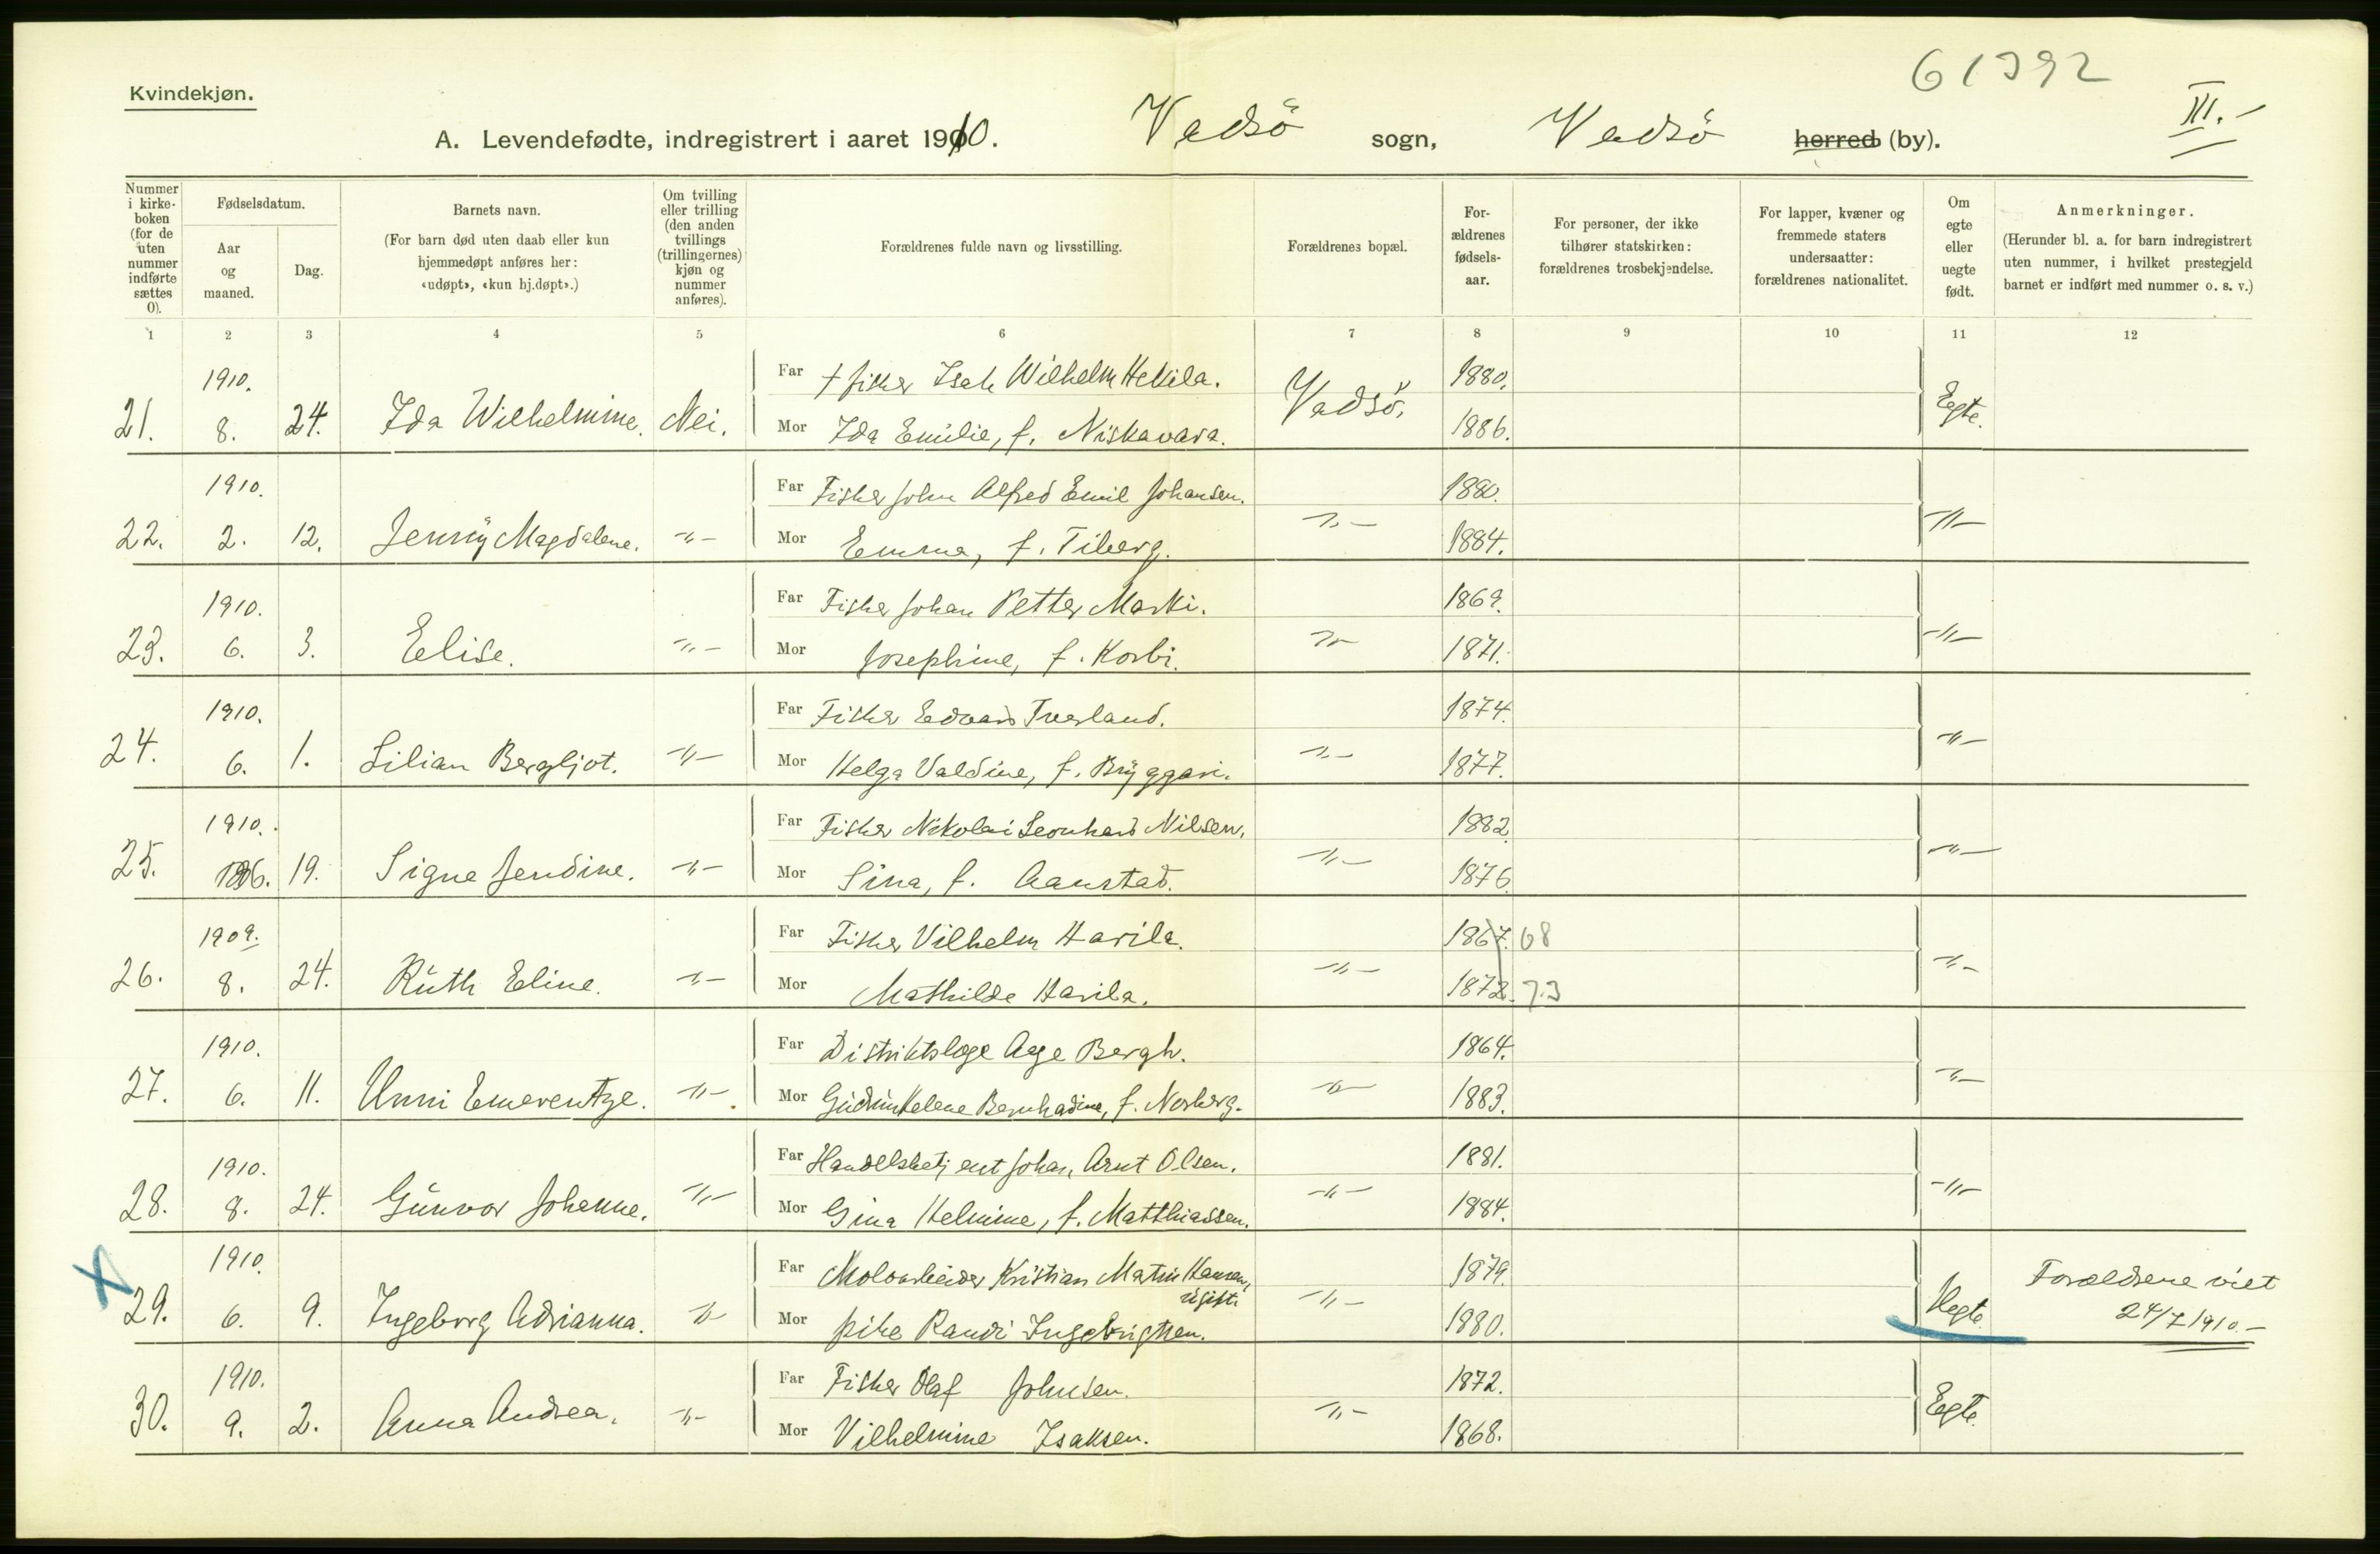 61392
Kvindekjøn.
III.-
A. Levendefødte, indregistrert i aaret 1910. Vadsö sogn, Vadsö herred (by).
Nummer i kirke-boken (for de uten nummer indførte sættes 0).
Fødselsdatum.
Aar og maaned.
Dag.
Barnets navn.
(For barn død uten daab eller kun hjemmedøpt anføres her: «udøpt», «kun hj.døpt».)
Om tvilling eller trilling (den anden tvillings (trillingernes) kjøn og nummer anføres).
Forældrenes fulde navn og livsstilling.
Forældrenes bopæl.
For-ældrenes fødsels-aar.
For personer, der ikke tilhører statskirken: forældrenes trosbekjendelse.
For lapper, kvæner og fremmede staters undersaatter: forældrenes nationalitet.
Om egte eller uegte født.
Anmerkninger.
(Herunder bl. a. for barn indregistrert uten nummer, i hvilket prestegjeld barnet er indført med nummer o. s. v.)
1 2 3 4 5 6 7 8 9 10 11 12
1910. Far † fisker Isak Wilhelm Heikila. 1880.
21. 8. 24. Ida Wilhelmine. Nei. Mor Ida Emilie, f. Niskavara. Vadsö. 1886. Egte.
1910. Far Fisker John Alfred Emil Johansen. 1880.
22. 2. 12. Jenny Magdalene. -"- Mor Emma, f. Tiberg. -"- 1884. -"-
1910. Far Fisker Johan Petter Marki. 1869.
23. 6. 3. Elise. -"- Mor Josephine, f. Korbi. -"- 1871. -"-
1910. Far Fisker Edvard Tverland. 1874.
24. 6. 1. Lilian Bergljot. -"- Mor Helga Valdine, f. Bryggari. -"- 1877. -"-
1910. Far Fisker Nikolai Leonhard Nilsen. 1882.
25. 6. 19. Signe Jendine. -"- Mor Sina, f. Aanstad. -"- 1876. -"-
1909. Far Fisker Vilhelm Harila. 1867. 68
26. 8. 24. Ruth Eline. -"- Mor Mathilde Harila. -"- 1872. 73 -"-
1910. Far Distriktslæge Aage Bergh. 1864.
27. 6. 11. Unni Emerentze. -"- Mor Gudrun Helene Bernhadine, f. Norberg. -"- 1883. -"-
1910. Far Handelsbetjent Johan Arnt Olsen. 1881.
28. 8. 24. Gunvor Johanne. -"- Mor Gina Helmine, f. Matthiassen. -"- 1884. -"-
X 1910. Far Moloarbeider Kristian Martin Hansen, 1879. Forældrene viet
29. 6. 9. Ingeborg Adrianna. -"- Mor ugift. pike Randi Ingebrigtsen. -"- 1880. Uegte. 24/7 1910.-
1910. Far Fisker Olaf Johnsen. 1872.
30. 9. 2. Anna Andrea. -"- Mor Vilhelmine Isaksen. -"- 1868. Egte.